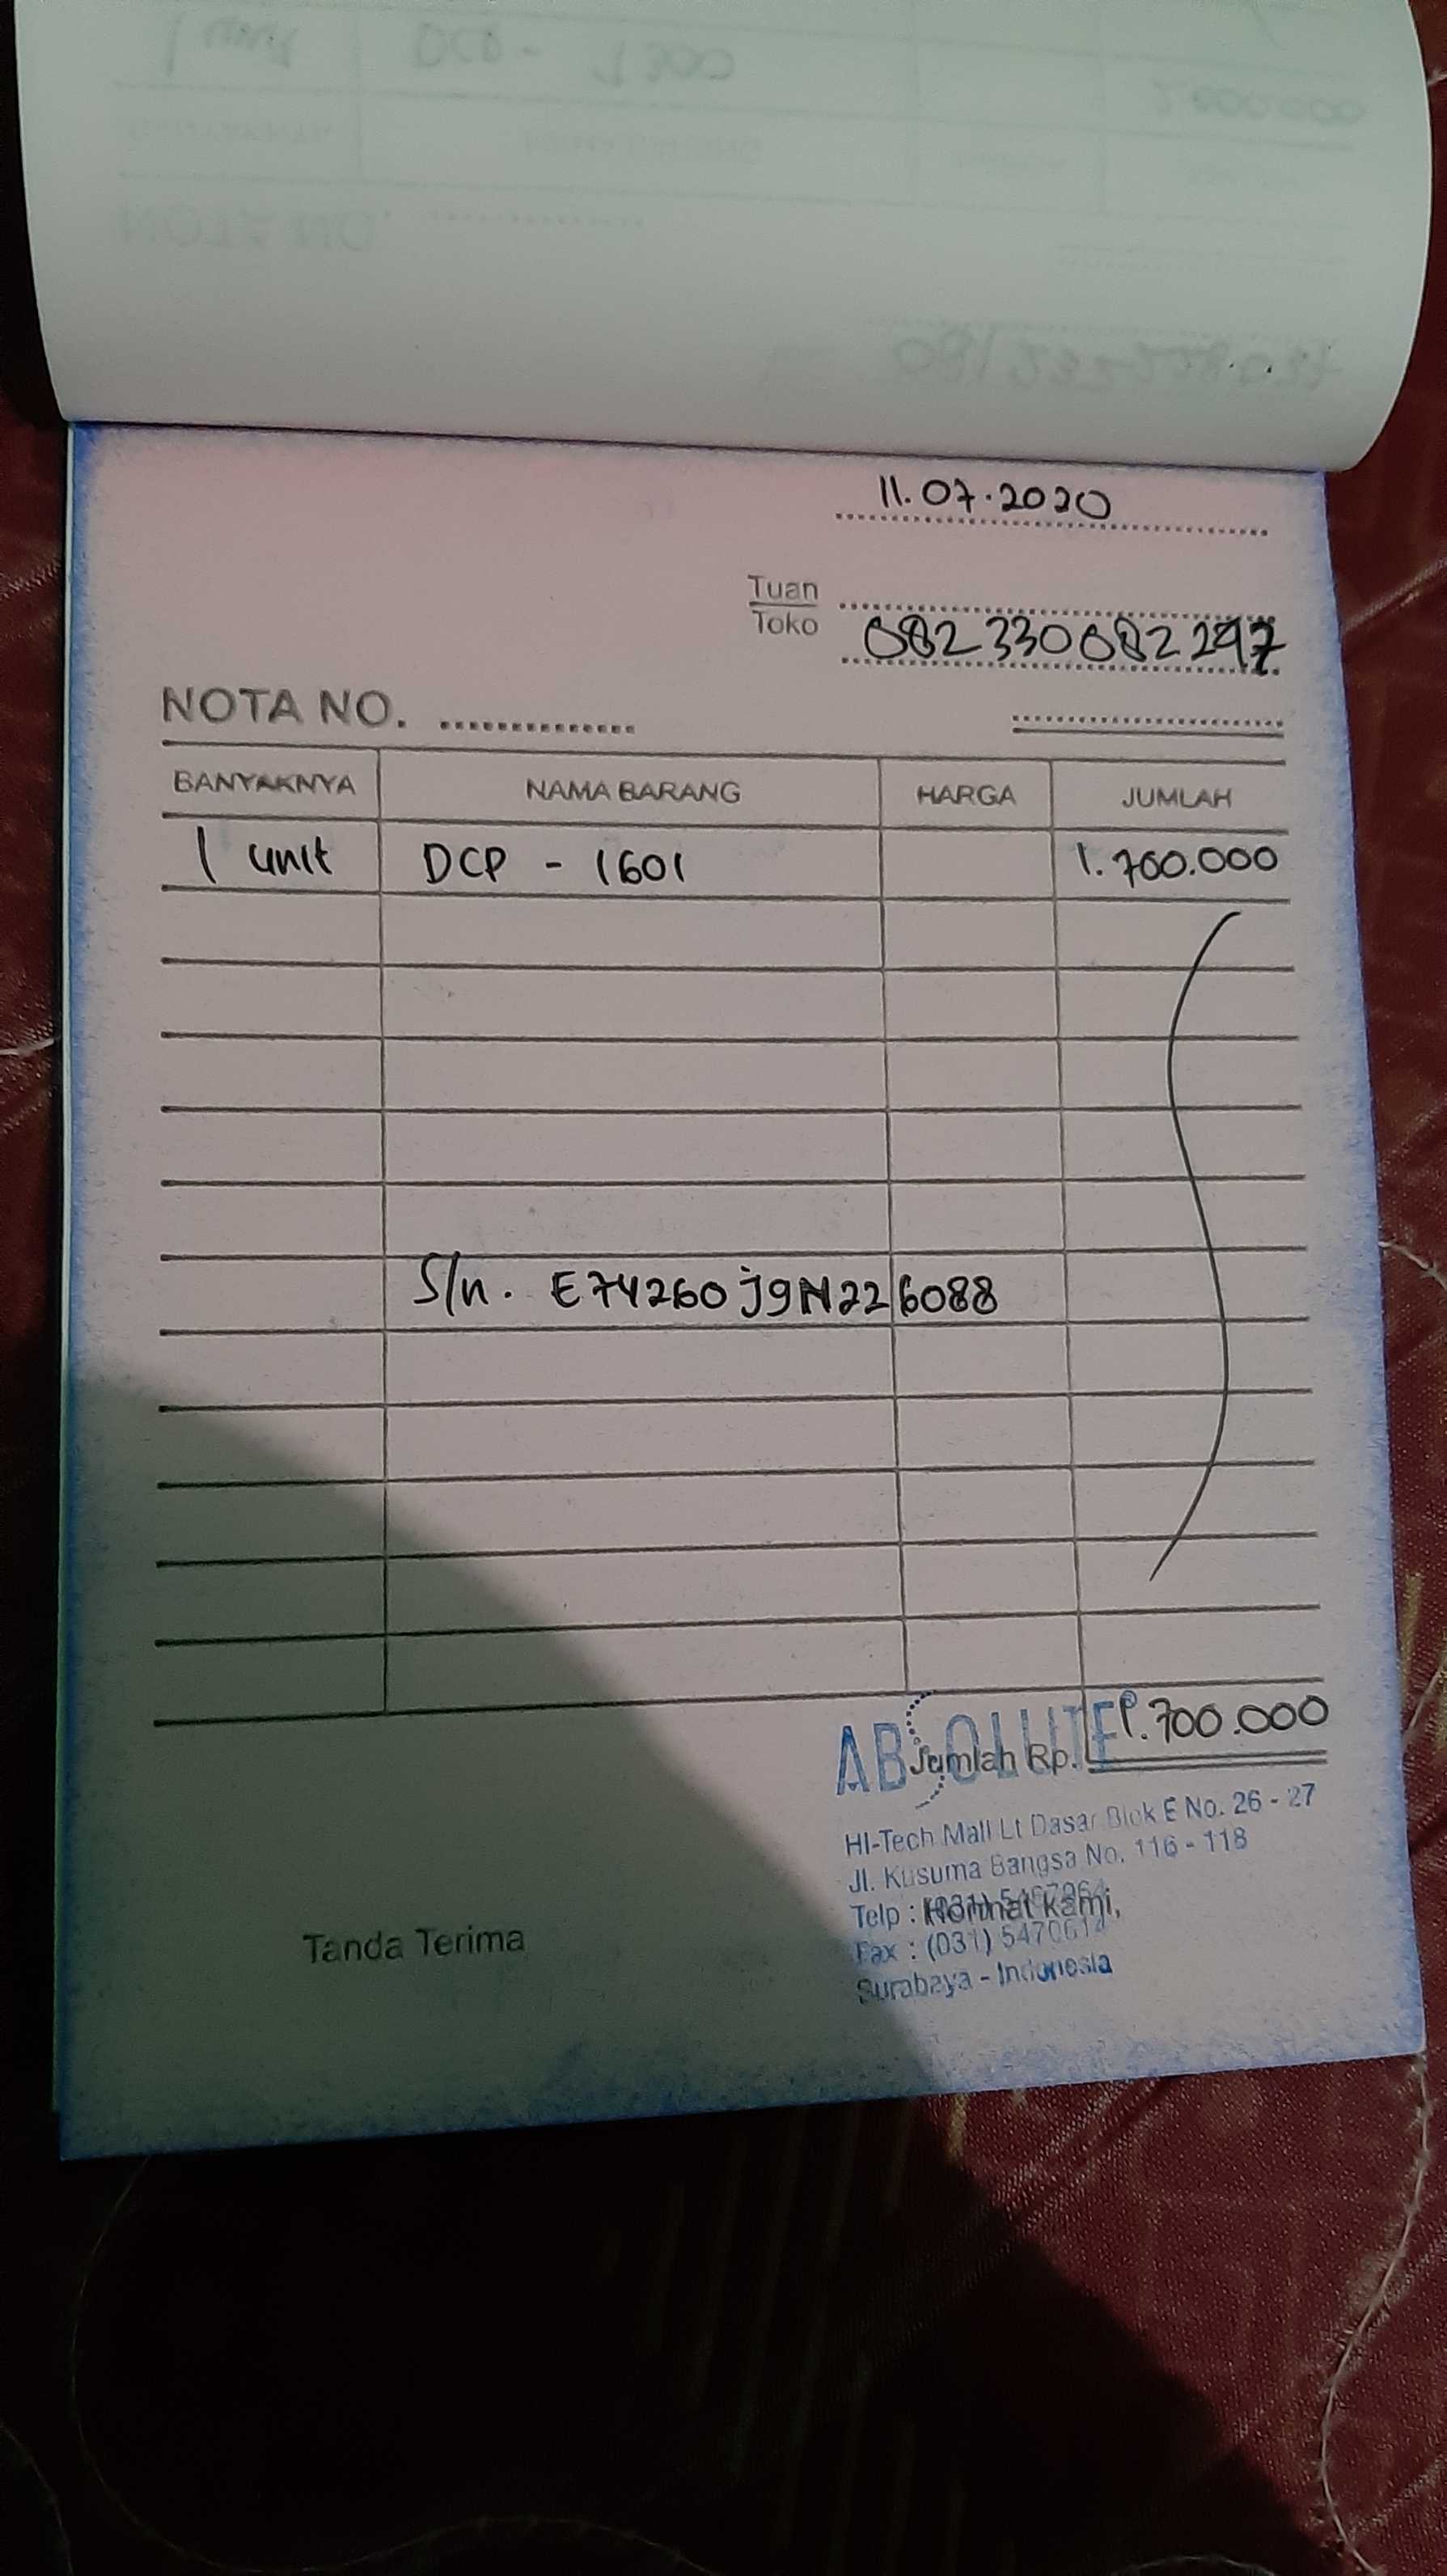 1 unit DCP - 1300
11.07.2020
Tuan
Toko 082330682297
NOTA NO.
BANYAKNYA NAMA BARANG HARGA JUMLAH
1 unit DCP - 1601 1.700.000
S/n. E74260J9N226088
ABSOLUTE
Jumlah Rp. 1.700.000
HI-Tech Mall Lt Dasar Blok E No. 26 - 27
Jl. Kusuma Bangsa No. 116 - 118
Telp :
Hormat kami,
Fax : (031)
Surabaya - Indonesia
Tanda Terima